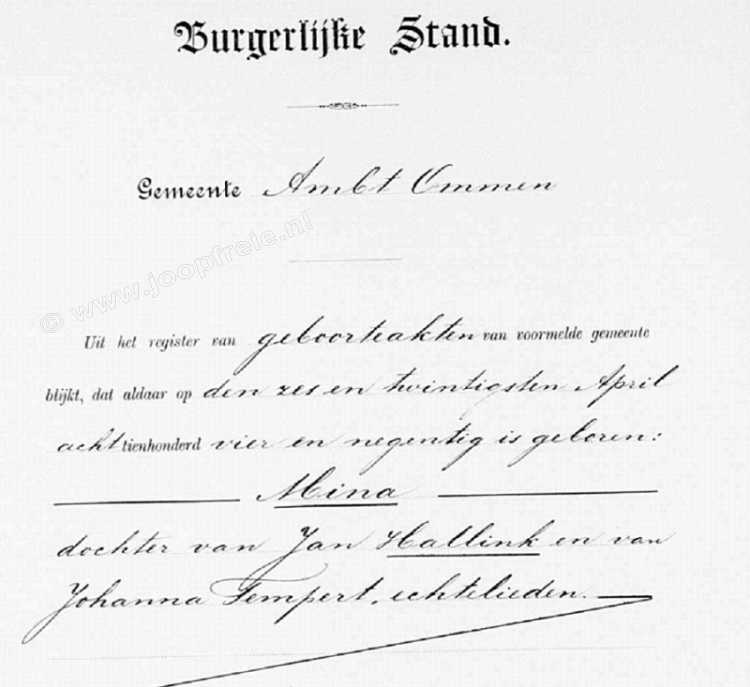 Burgerlijke Stand.
Gemeente Ambt Ommen
© www.joopfreie.nl
Uit het register van geboorteakten van voormelde gemeente
blijkt, dat aldaar op den zes en twintigsten April
achttienhonderd vier en negentig is geboren:
Mina
dochter van Jan Hallink en van
Johanna Tempert, echtelieden.